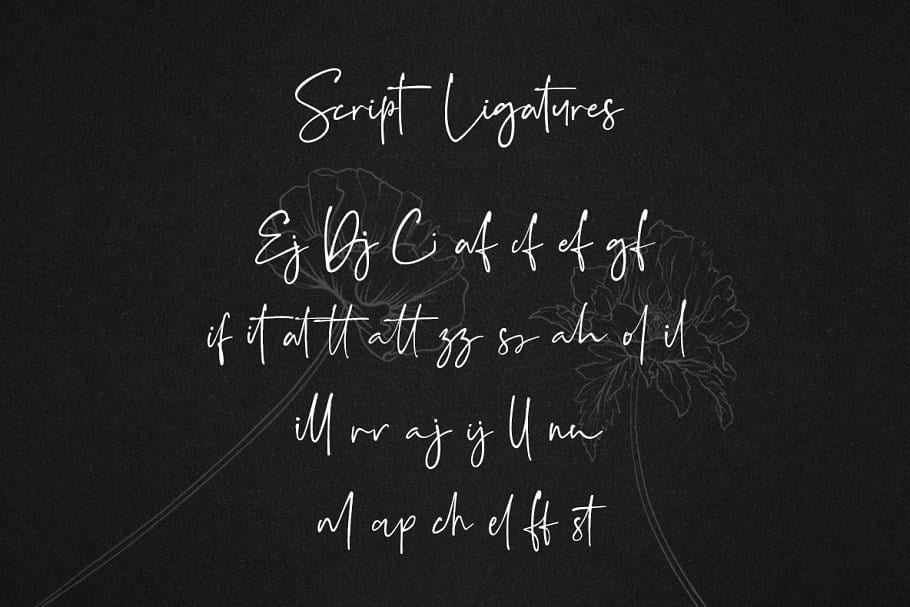 Script Ligatures
Ej Dj Cj af cf ef gf
if it at tt att zz ss ah ol il
ill rr aj ij ll nn
nl ap ch el ff st